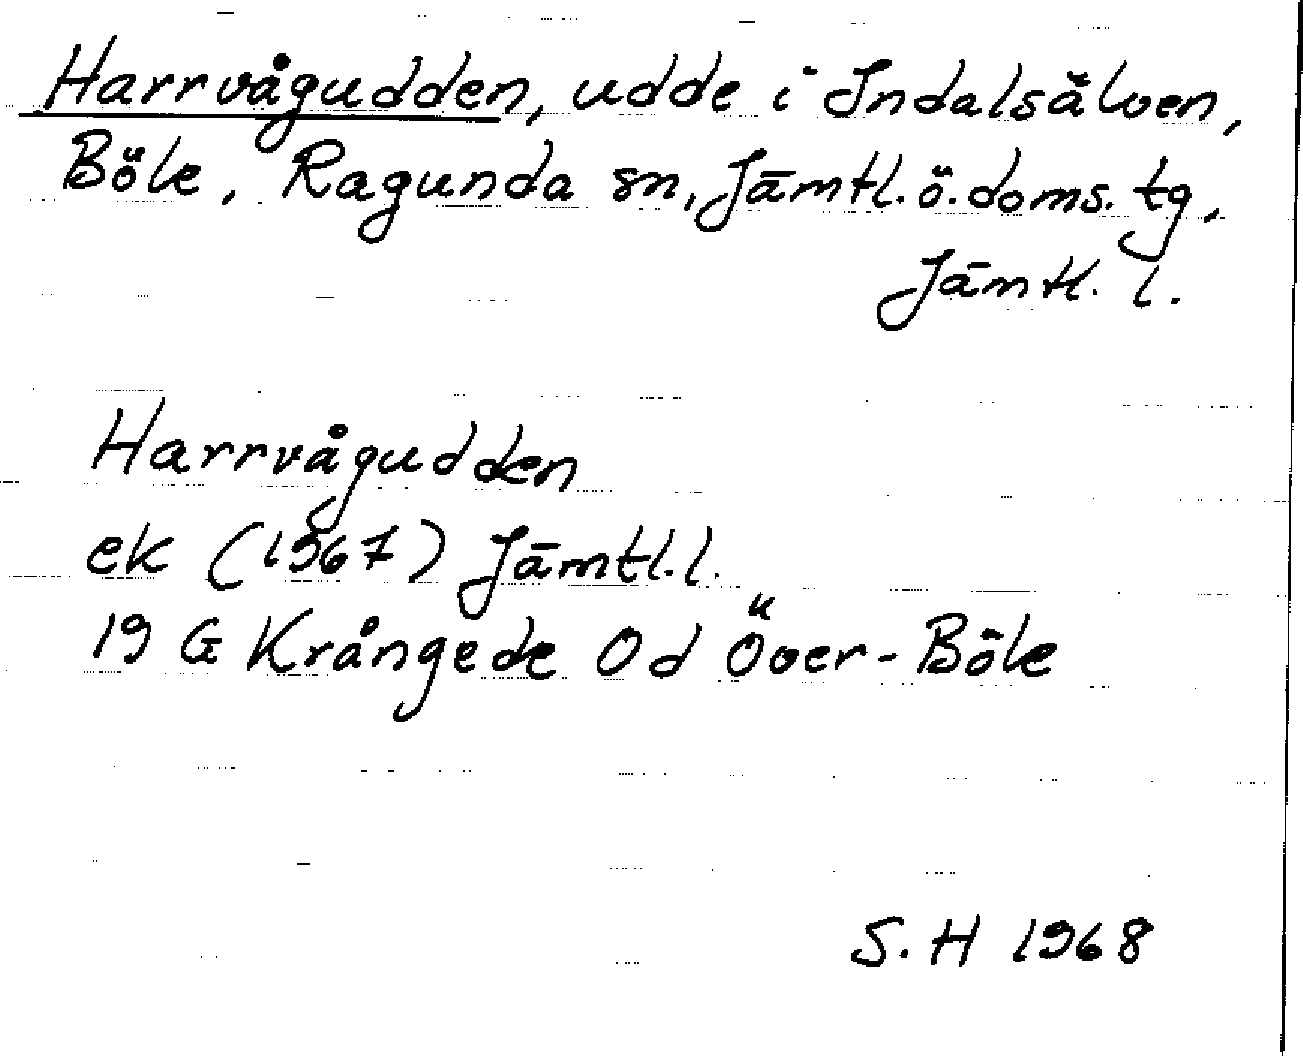 Harrvågudden, udde i Indalsälven,
Böle, Ragunda sn, Jämtl. ö. doms. tg,
Jämtl. l.
Harrvågudden
ek (1967) Jämtl. l.
19 G Krångede Od Över-Böle
S. H 1968